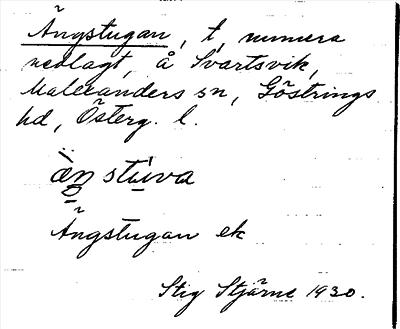 Ängstugan, t, numera
nedlagt, å Svartsvik,
Malexanders sn, Göstrings
hd, Österg. l.
ä̀ŋstúva
Ängstugan ek
Stig Stjärne 1930.